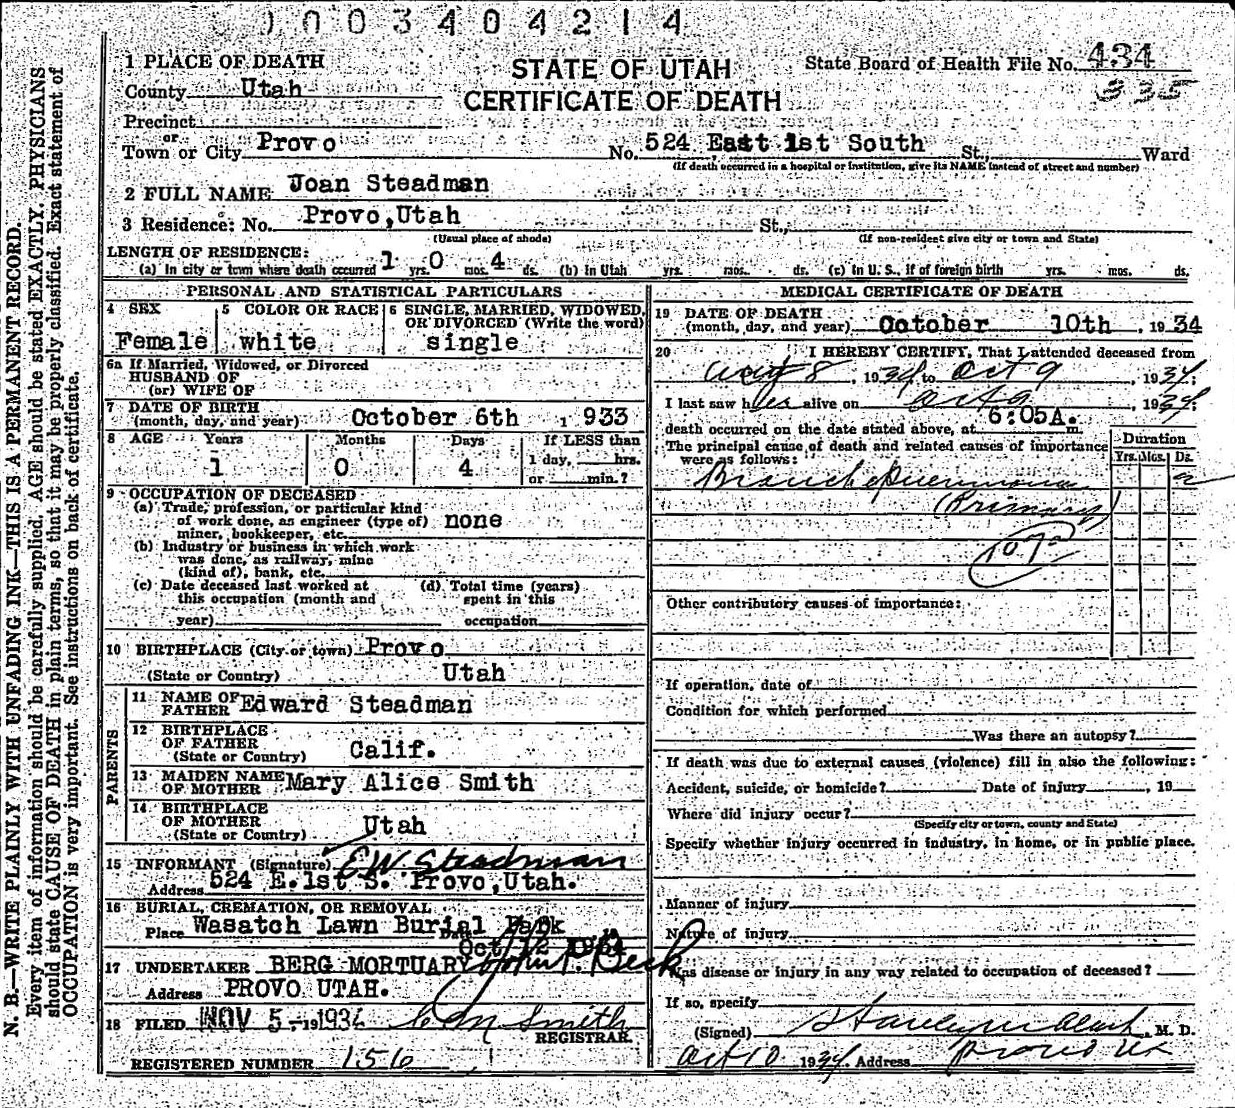 0003404214
N. B.—WRITE PLAINLY WITH UNFADING INK—THIS IS A PERMANENT RECORD.
Every item of information should be carefully supplied. AGE should be stated EXACTLY. PHYSICIANS
should state CAUSE OF DEATH in plain terms, so that it may be properly classified. Exact statement of
OCCUPATION is very important. See instructions on back of certificate.
STATE OF UTAH
CERTIFICATE OF DEATH
State Board of Health File No. 434
335
1 PLACE OF DEATH
County Utah
Precinct
or
Town or City Provo No. 524 East 1st South St., Ward
(If death occurred in a hospital or institution, give its NAME instead of street and number)
2 FULL NAME Joan Steadman
3 Residence: No. Provo, Utah St.,
(Usual place of abode) (If non-resident give city or town and State)
LENGTH OF RESIDENCE:
(a) In city or town where death occurred 1 yrs. 0 mos. 4 ds. (b) In Utah yrs. mos. ds. (c) In U. S., if of foreign birth yrs. mos. ds.
PERSONAL AND STATISTICAL PARTICULARS
4 SEX 5 COLOR OR RACE 6 SINGLE, MARRIED, WIDOWED, OR DIVORCED (Write the word)
Female white single
6a If Married, Widowed, or Divorced
HUSBAND OF
(or) WIFE OF
7 DATE OF BIRTH
(month, day, and year) October 6th , 1933
8 AGE Years Months Days If LESS than
1 0 4 1 day, hrs.
or min.?
9 OCCUPATION OF DECEASED
(a) Trade, profession, or particular kind
of work done, as engineer (type of) none
miner, bookkeeper, etc.
(b) Industry or business in which work
was done, as railway, mine
(kind of), bank, etc.
(c) Date deceased last worked at (d) Total time (years)
this occupation (month and spent in this
year) occupation
10 BIRTHPLACE (City or town) Provo
(State or Country) Utah
PARENTS
11 NAME OF
FATHER Edward Steadman
12 BIRTHPLACE
OF FATHER
(State or Country) Calif.
13 MAIDEN NAME
OF MOTHER Mary Alice Smith
14 BIRTHPLACE
OF MOTHER
(State or Country) Utah
15 INFORMANT (Signature) E.W. Steadman
Address 524 E. 1st S. Provo, Utah.
16 BURIAL, CREMATION, OR REMOVAL
Place Wasatch Lawn Burial Park
Date Oct 12 1934
17 UNDERTAKER BERG MORTUARY John F. Beck
Address PROVO UTAH.
18 FILED NOV 5 - 1934 Smith
REGISTRAR.
REGISTERED NUMBER 156
MEDICAL CERTIFICATE OF DEATH
19 DATE OF DEATH
(month, day, and year) October 10th , 1934
20 I HEREBY CERTIFY, That I attended deceased from
8 , 1934 to Oct 9 , 1934;
I last saw her alive on Oct 9 , 1934;
death occurred on the date stated above, at 6:05A. m.
The principal cause of death and related causes of importance
were as follows:
Duration
Yrs. Mos. Ds.
Broncho Pneumonia 2
(Primary)
107a
Other contributory causes of importance:
If operation, date of
Condition for which performed
Was there an autopsy?
If death was due to external causes (violence) fill in also the following:
Accident, suicide, or homicide? Date of injury , 19
Where did injury occur?
(Specify city or town, county and State)
Specify whether injury occurred in industry, in home, or in public place.
Manner of injury
Nature of injury
Was disease or injury in any way related to occupation of deceased?
If so, specify
(Signed) , M. D.
Oct 10 1934. Address Provo Ut